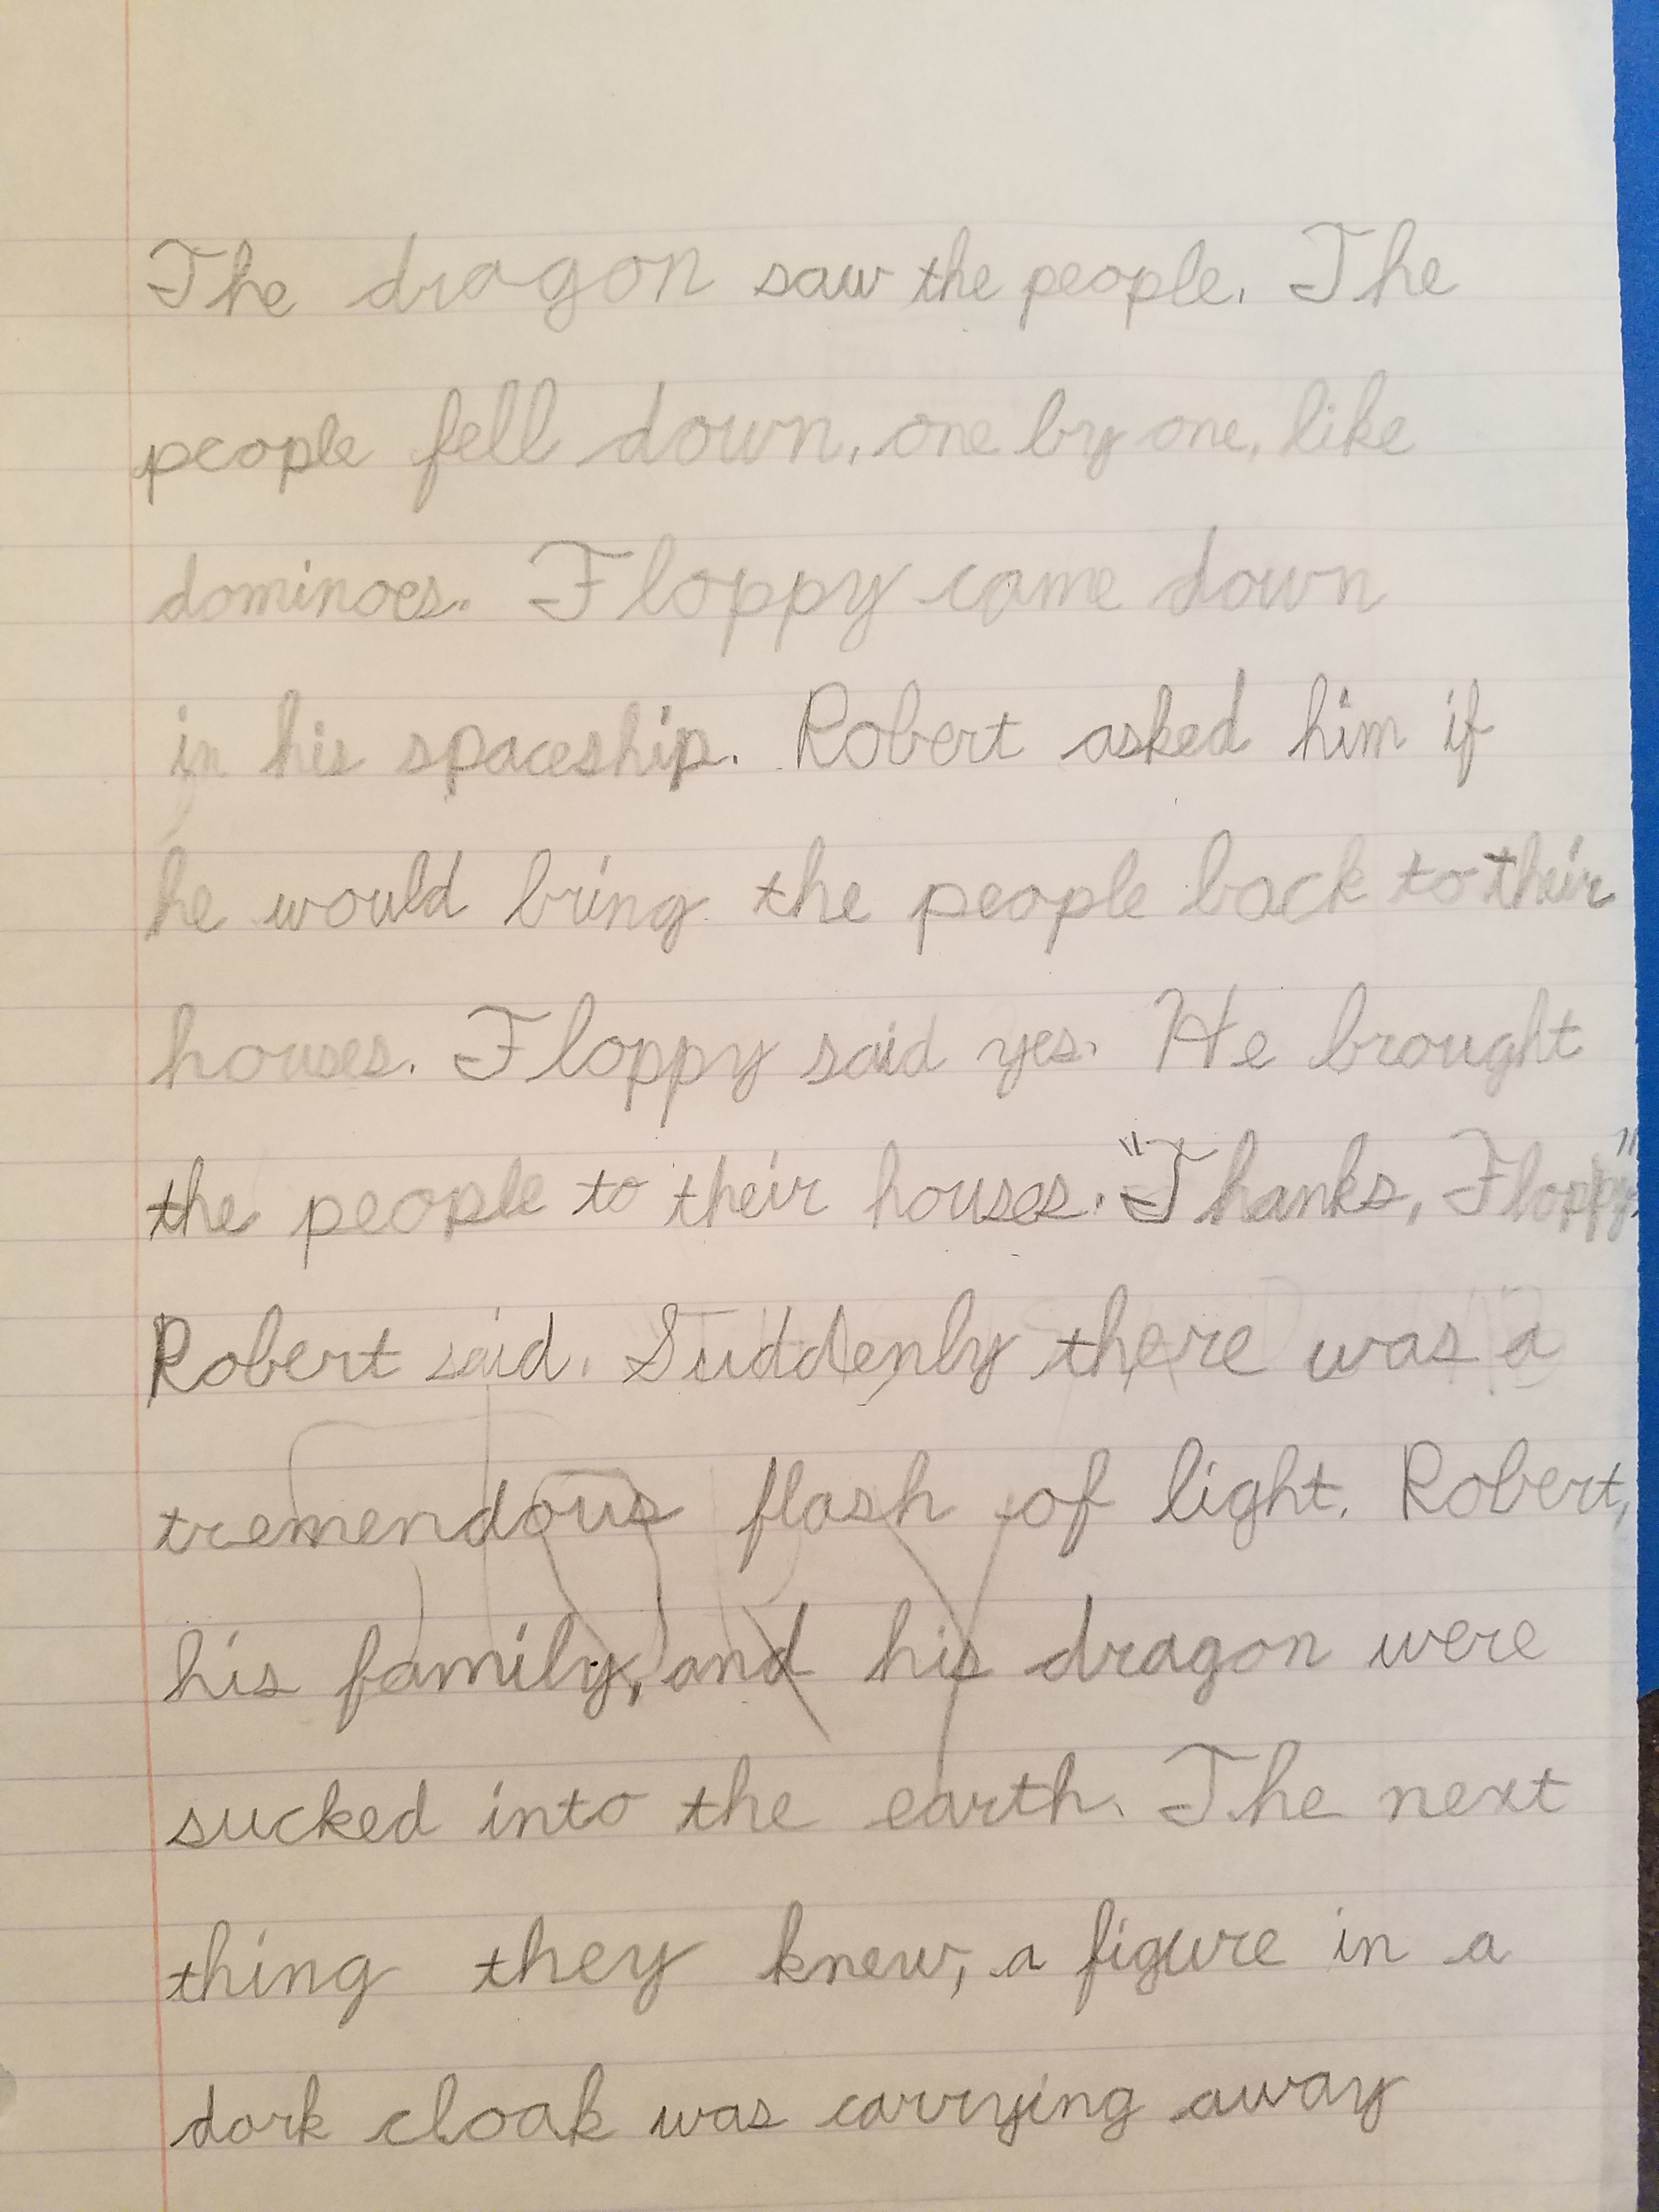 The dragon saw the people. The
people fell down, one by one, like
dominoes. Floppy came down
in his spaceship. Robert asked him if
he would bring the people back to their
houses. Floppy said yes. He brought
the people to their houses. "Thanks, Floppy,"
Robert said. Suddenly there was a
tremendous flash of light. Robert,
his family, and his dragon were
sucked into the earth. The next
thing they knew, a figure in a
dark cloak was carrying away